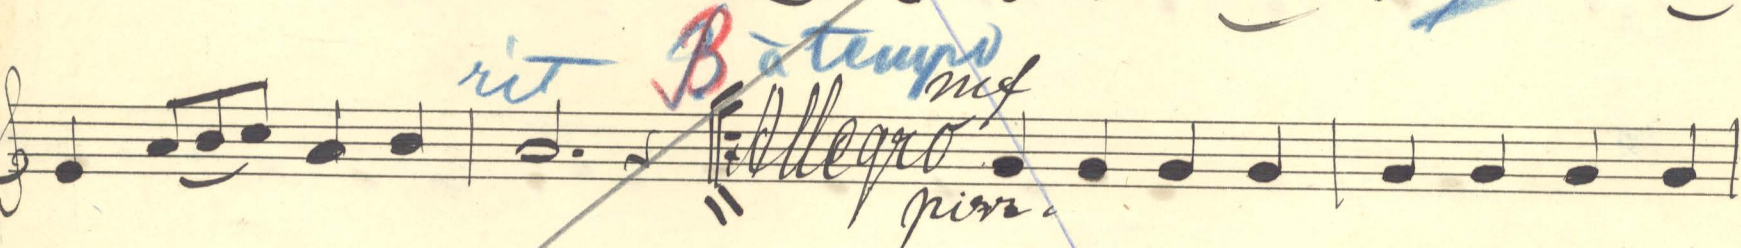 rit B à tempo
mf
Allegro
pizz.